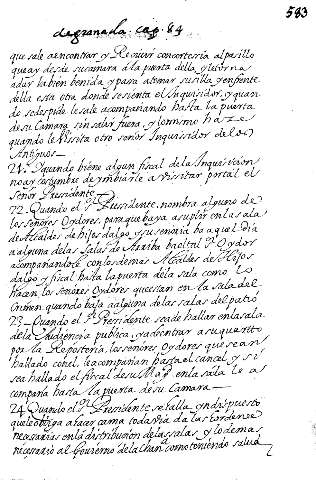 583
de granada. Cap. 84
que sale a encontrar y Recivir con cortesia al pasillo
que ay desde su camara a la puerta della y le torna
a dar la bien benida, y para a tomar su silla y enfrente
della esta otra donde se sienta el Inquisidor, y quan
do se despide le sale acompañando hasta la puerta
de su Camara sin salir fuera, y lo mismo haze
quando le Vissita otro señor Inquissidor de los
Antiguos
21. quando biene algun fiscal de la Inquisicion
no ay costumbre de ymbiarle a vissitar por el
Señor Presidente
22. Quando el sr. Presidente, nombra alguno de
los señores Oydores, para que baya a suplir en la sala
de Alcaldes, de hijos dalgo, y su señoria ba aquel dia
a alguna de las Salas de Arriba, el tal sr. Oydor
acompañandole con los demas Alcaldes de Hijos
dalgo y fiscal hasta la puerta de la sala como lo
hacen los señores Oydores que estan en la sala del
Crimen quando baja a alguna de las salas del patio
23. Quando el sr. Presidente se a de hallar en la sala
de la Audiencia publica, y a de entrar a su quarto
por la Reposteria, los señores Oydores que se an
hallado con el, le acompañan hasta el cancel, y si
se a hallado el fiscal de su Magd en la sala le a
compaña hasta la puerta de su Camara
24. Quando el sr. Presidente se halla yndispuesto
que le obliga a hacer cama todavia da las hordenes
necesarias en la distribucion de las salas, y lo demas
necesario al Govierno de la Chanca. como teniendo salud